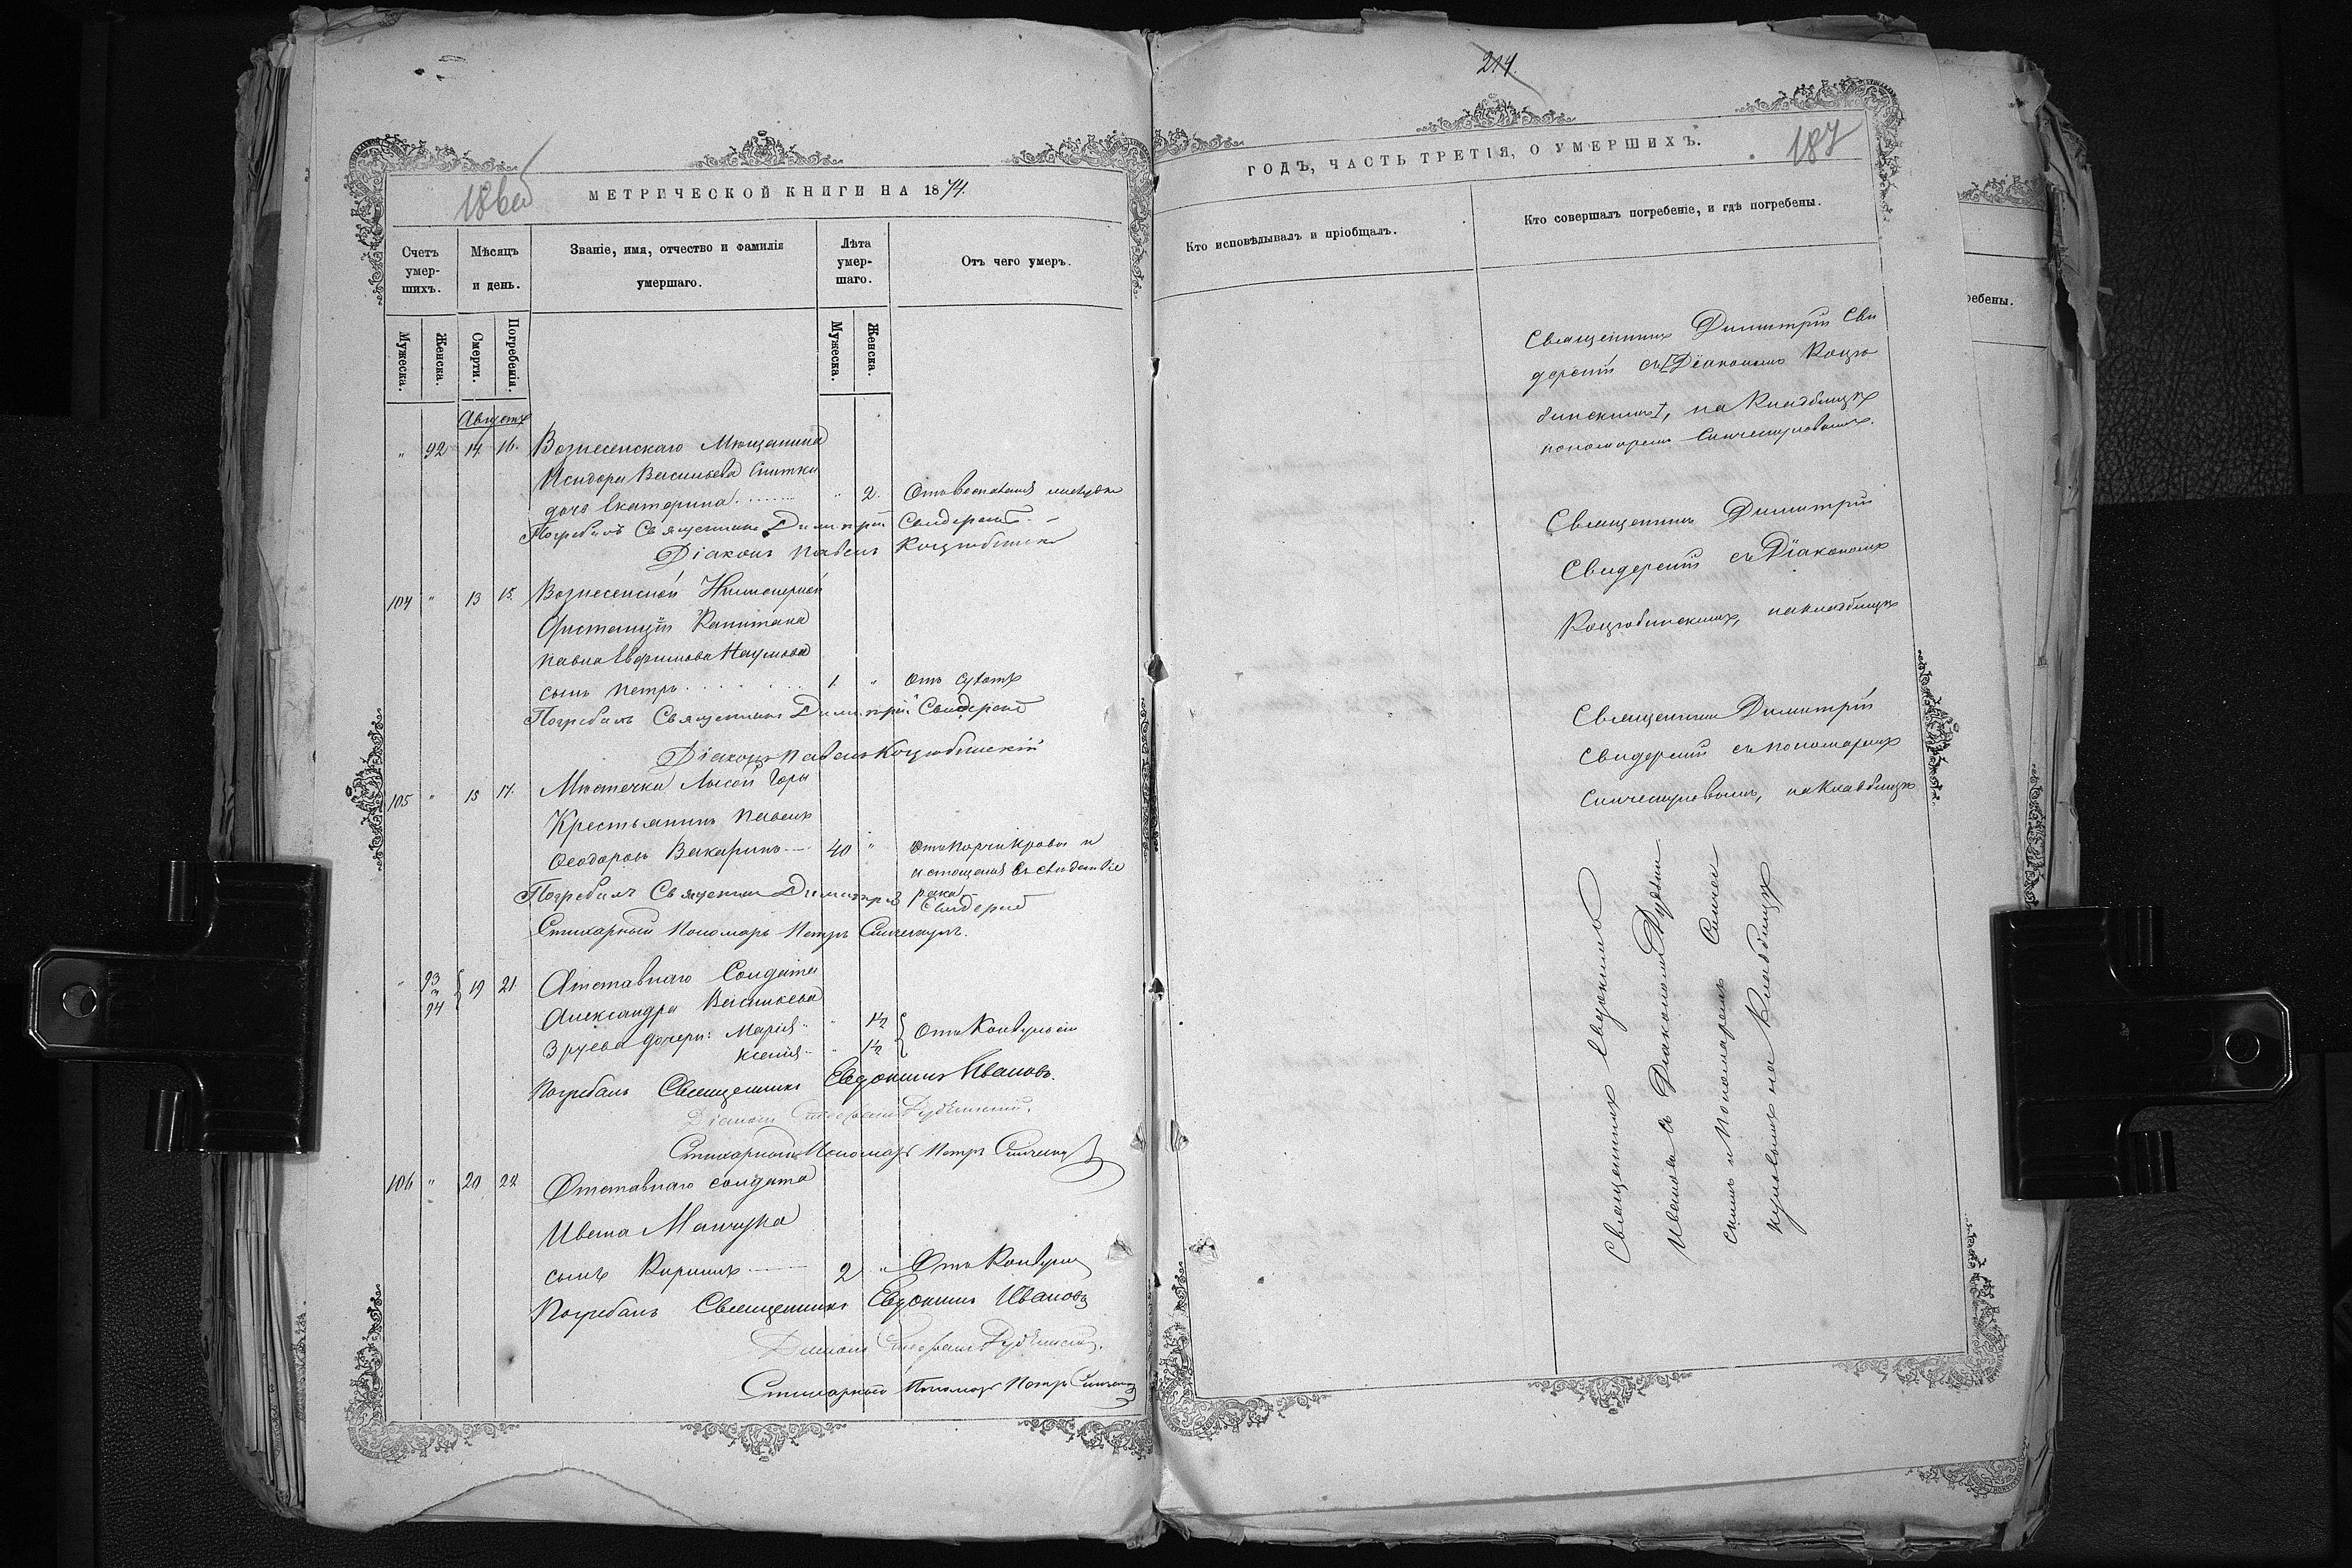 186об
МЕТРИЧЕСКОЙ КНИГИ НА 1874.
Счетъ умер-шихъ.
Мѣсяцъ и день.
Званіе, имя, отчество и фамилія умершаго.
Лѣта умер-шаго.
Отъ чего умеръ.
Мужеска.
Женска.
Смерти.
Погребенія.
Мужеска.
Женска.
Августъ
" 92 14 16. Вознесенскаго Мѣщанина
Исидора Васильева
дочь Екатерина " 2. Отъ воспаленія
Погребалъ Священникъ Димитрій Свидерскій
Діаконъ Павелъ Коцюбинскій
104 " 13 15. Вознесенской Инженерной
Дистанціи Капитана
Павла Евфимова Наумова
сынъ Петръ 1. " Отъ сухотъ
Погребалъ Священникъ Димитрій Свидерскій
Діаконъ Павелъ Коцюбинскій
105 " 15 17. Мѣстечка Лысой Горы
Крестьянинъ Павелъ
Ѳеодоровъ 40 " Отъ порчи крови и
истощенія въ слѣдствіе
рака
Погребалъ Священникъ Димитрій Свидерскій
Стихарный Пономарь Петръ
" 93 и 94 19 21 Отставнаго Солдата
Александра Васильева
дочери: Марія " 1½
Ксенія " 1½ Отъ Конвульсіи
Погребалъ Священникъ Евдокимъ Ивановъ.
Діаконъ
Стихарный Пономарь Петръ
106 " 20 22 Отставнаго солдата
Ивана
сынъ Кириллъ 2 " Отъ Конвульсіи
Погребалъ Священникъ Евдокимъ Ивановъ
Діаконъ
Стихарный Пономарь Петръ
214.
187
ГОДЪ, ЧАСТЬ ТРЕТІЯ, О УМЕРШИХЪ.
Кто исповѣдывалъ и пріобщалъ.
Кто совершалъ погребеніе, и гдѣ погребены.
Священникъ Димитрій Сви
дерскій съ Діакономъ Коцю
бинскимъ, на Кладбищѣ
пономаремъ
Священникъ Димитрій
Свидерскій съ Діакономъ
Коцюбинскимъ, на кладбищѣ
Священникъ Димитрій
Свидерскій съ пономаремъ
на Кладбищѣ
Священникъ Евдокимъ
Ивановъ съ Діакономъ
скимъ и Пономаремъ
на Кладбищѣ
ребены.